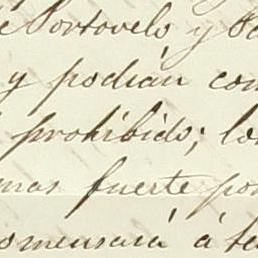 e Portovelo y Pa
y podián con
prohibido; lo
mas fuerte por
omensará á te